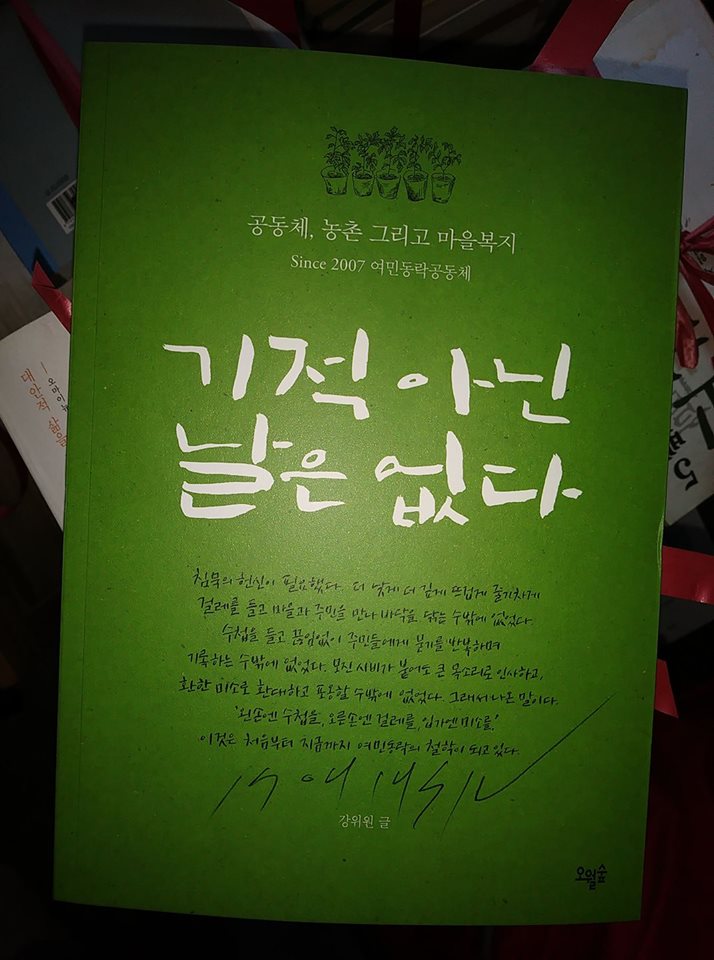 공동체, 농촌 그리고 마을복지
Since 2007 여민동락공동체
기적 아닌
날은 없다
침묵의 헌신이 필요했다. 더 낮게 더 깊게 뜨겁게 줄기차게
걸레를 들고 마을과 주민을 만나 바닥을 닦는 수밖에 없었다.
수첩을 들고 끊임없이 주민들에게 묻기를 반복하며
기록하는 수밖에 없었다. 모진 시비가 붙어도 큰 목소리로 인사하고,
환한 미소로 환대하고 포옹할 수밖에 없었다. 그래서 나온 말이다.
'왼손엔 수첩을, 오른손엔 걸레를, 입가엔 미소를.'
이것은 처음부터 지금까지 여민동락의 철학이 되고 있다.
강위원 글
오월숲
대안적 삶을
오마이